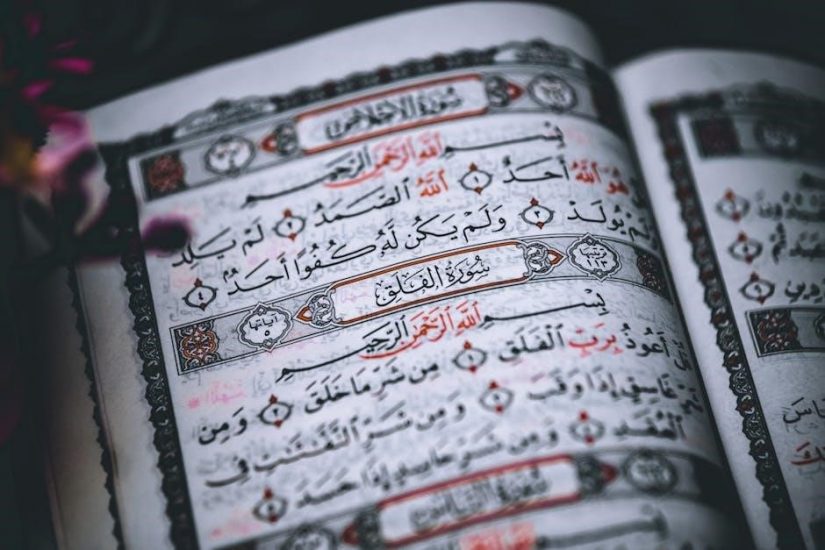 سُورَةُ الإِخْلَاصِ
بِسْمِ اللَّهِ الرَّحْمَٰنِ الرَّحِيمِ
هُوَ اللَّهُ أَحَدٌ ١ اللَّهُ الصَّمَدُ ٢ لَمْ يَلِدْ
وَلَمْ يُولَدْ ٣ وَلَمْ يَكُن لَّهُ كُفُوًا أَحَدٌ ٤
ترتيبها ١١٣ سُورَةُ الفَلَقِ آياتها ٥
بِسْمِ اللَّهِ الرَّحْمَٰنِ الرَّحِيمِ
قُلْ أَعُوذُ بِرَبِّ الْفَلَقِ ١ مِن شَرِّ مَا خَلَقَ ٢ وَمِن
شَرِّ غَاسِقٍ إِذَا وَقَبَ ٣ وَمِن شَرِّ النَّفَّٰثَٰتِ فِي
الْعُقَدِ ٤ وَمِن شَرِّ حَاسِدٍ إِذَا حَسَدَ ٥
سُورَةُ النَّاسِ